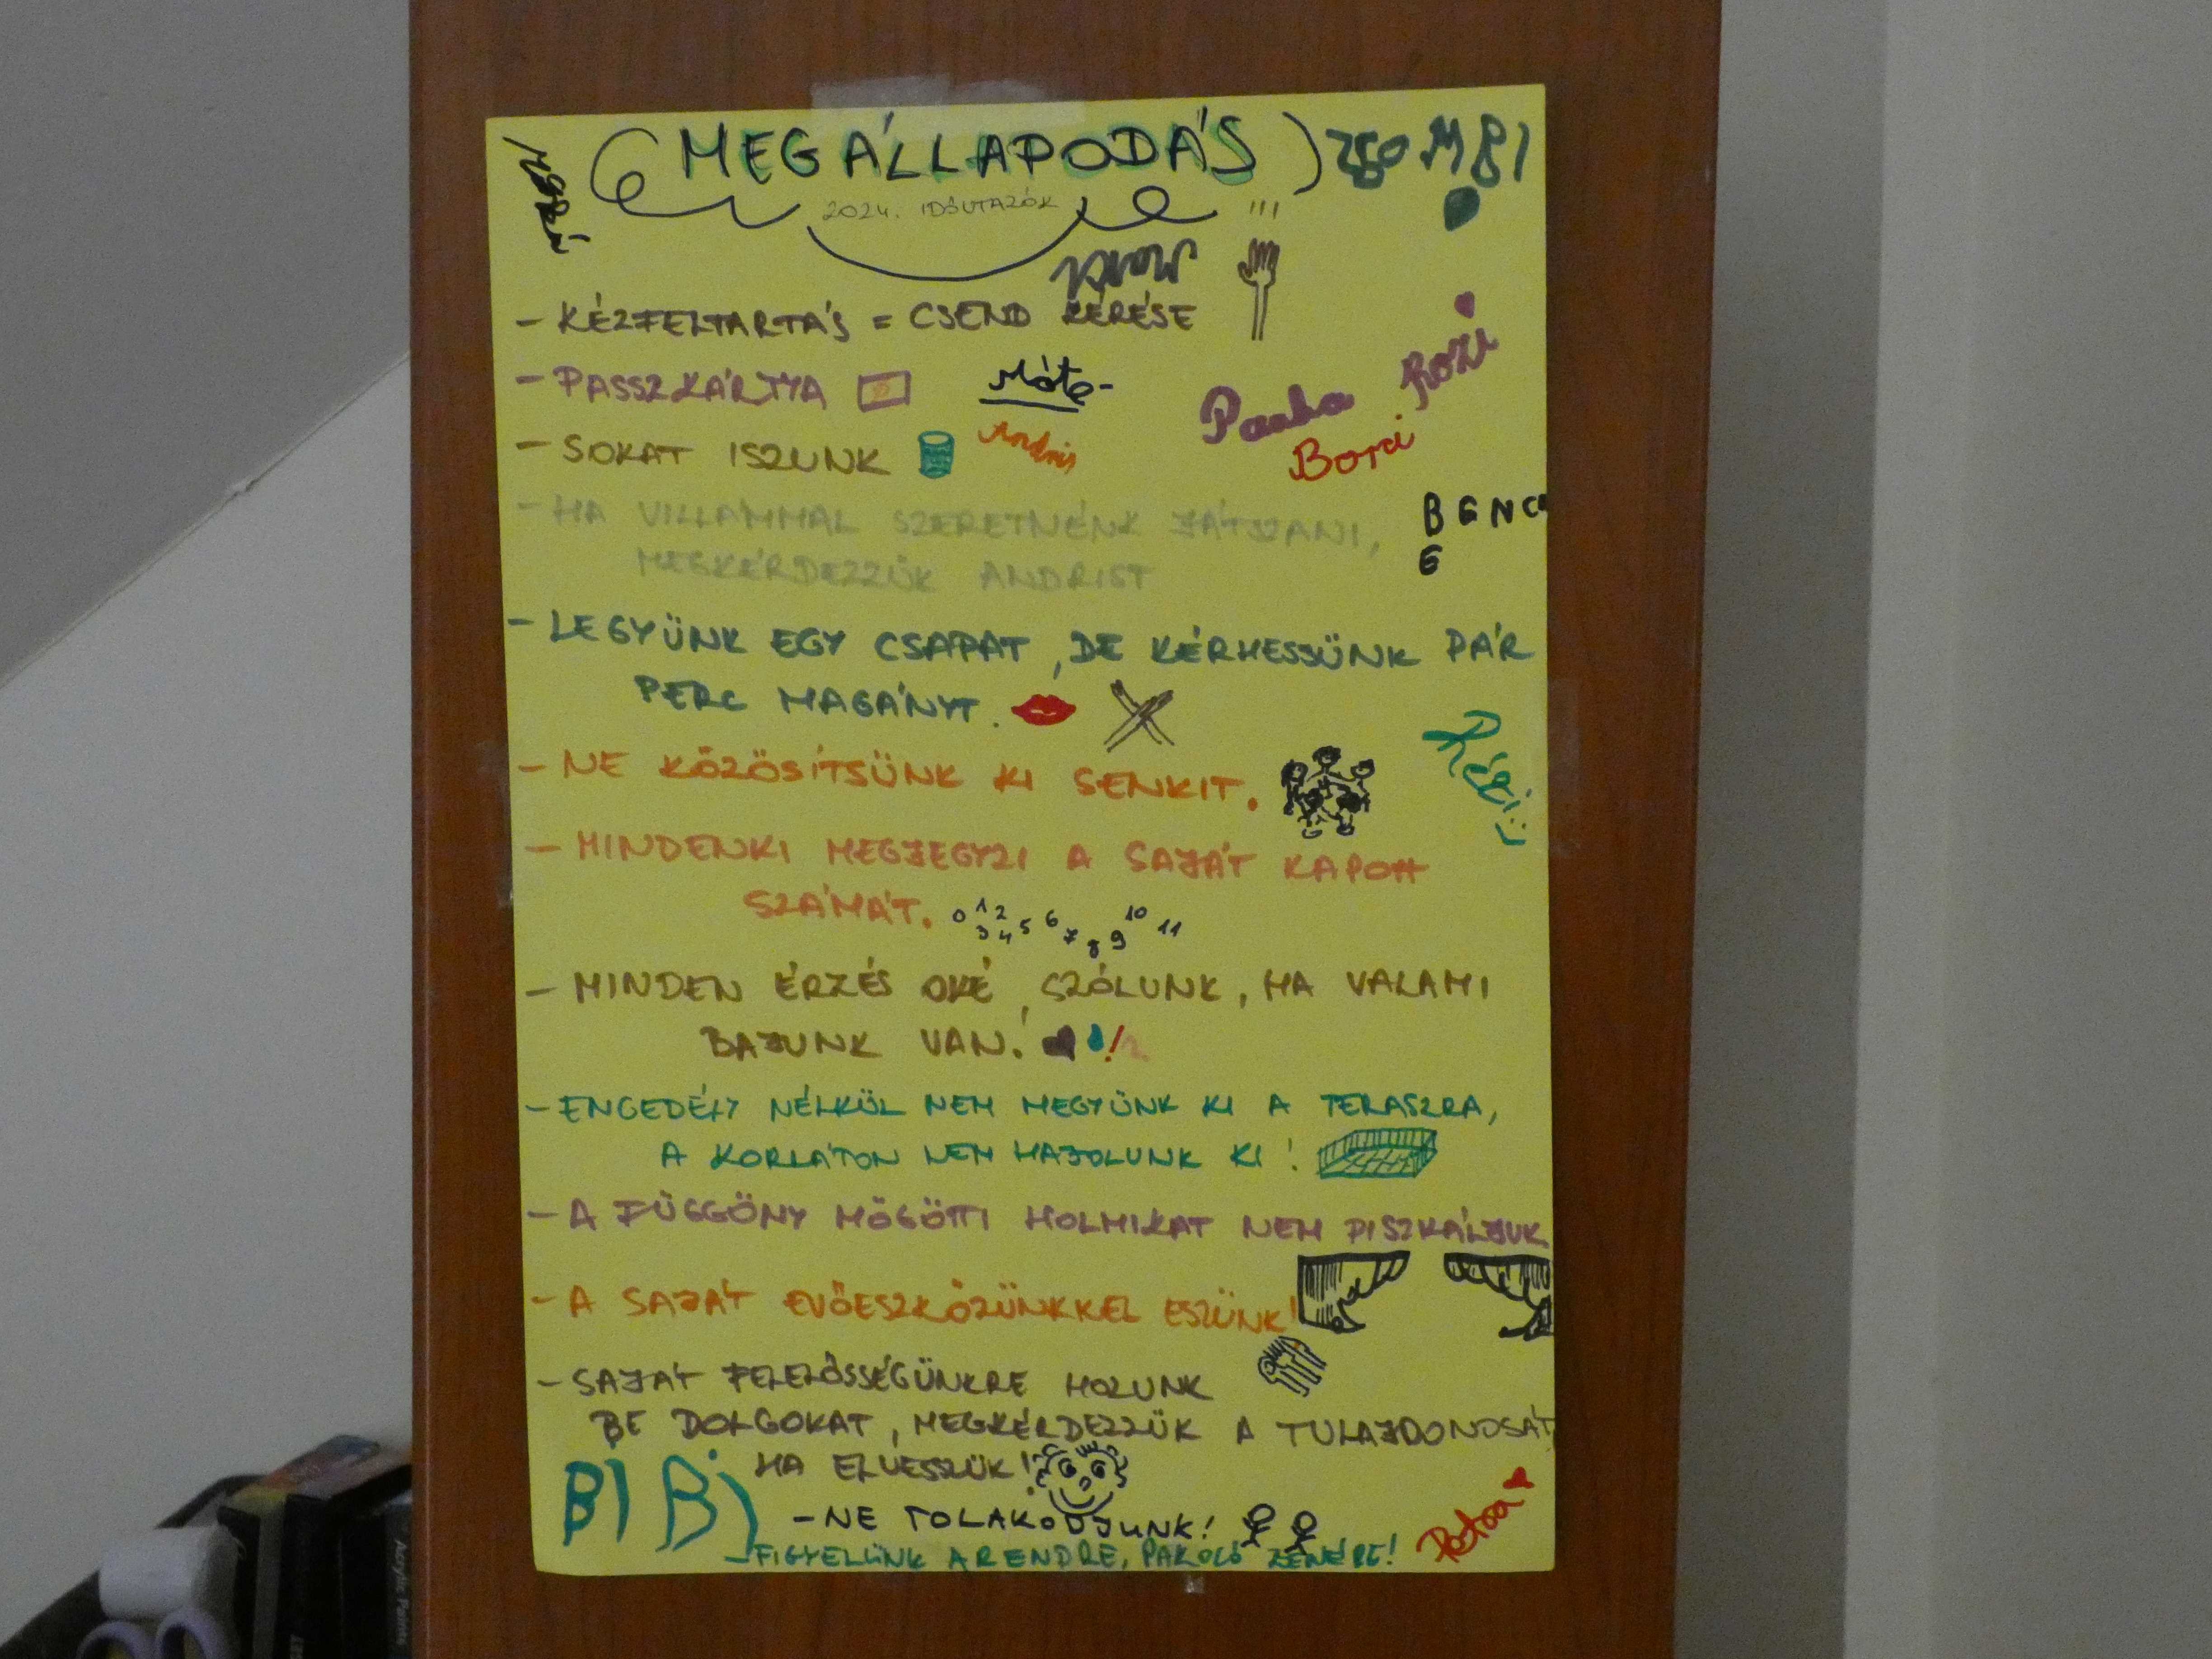 MEGÁLLAPODÁS
ZSOMBI
2024. IDŐUTAZÓK
- KÉZFELTARTÁS = CSEND KÉRÉSE
- PASSZKÁRTYA
Máté
Rozi
- SOKAT ISZUNK
Andris
Borci
- HA VILLÁMMAL SZERETNÉNK JÁTSZANI,
MEGKÉRDEZZÜK ANDRIST
BENC
E
- LEGYÜNK EGY CSAPAT, DE KÉRHESSÜNK PÁR
PERC MAGÁNYT.
- NE KÖZÖSÍTSÜNK KI SENKIT.
Rézi
- MINDENKI MEGJEGYZI A SAJÁT KAPOTT
SZÁMÁT. 0 1 2 3 4 5 6 7 8 9 10 11
- MINDEN ÉRZÉS OKÉ, SZÓLUNK, HA VALAMI
BAJUNK VAN!
- ENGEDÉLY NÉLKÜL NEM MEGYÜNK KI A TERASZRA,
A KORLÁTON NEM HAJOLUNK KI!
- A FÜGGÖNY MÖGÖTTI HOLMIKAT NEM PISZKÁLJUK
- A SAJÁT EVŐESZKÖZÜNKKEL ESZÜNK!
- SAJÁT FELELŐSSÉGÜNKRE HOZUNK
BE DOLGOKAT, MEGKÉRDEZZÜK A TULAJDONOSÁT
HA ELVESSZÜK!
BIBI
- NE TOLAKODJUNK!
- FIGYELÜNK A RENDRE, PAKOLÓ ZENÉRE!
Acrylic Paints